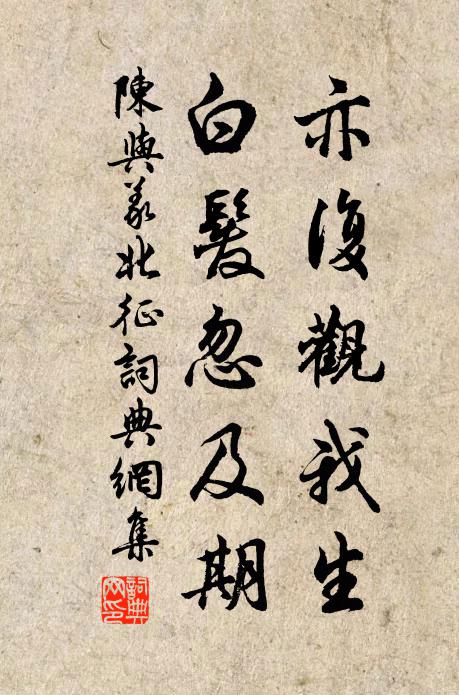 亦復觀我生
白髮忽及期
陳與義北征詞典網集
詞典網印